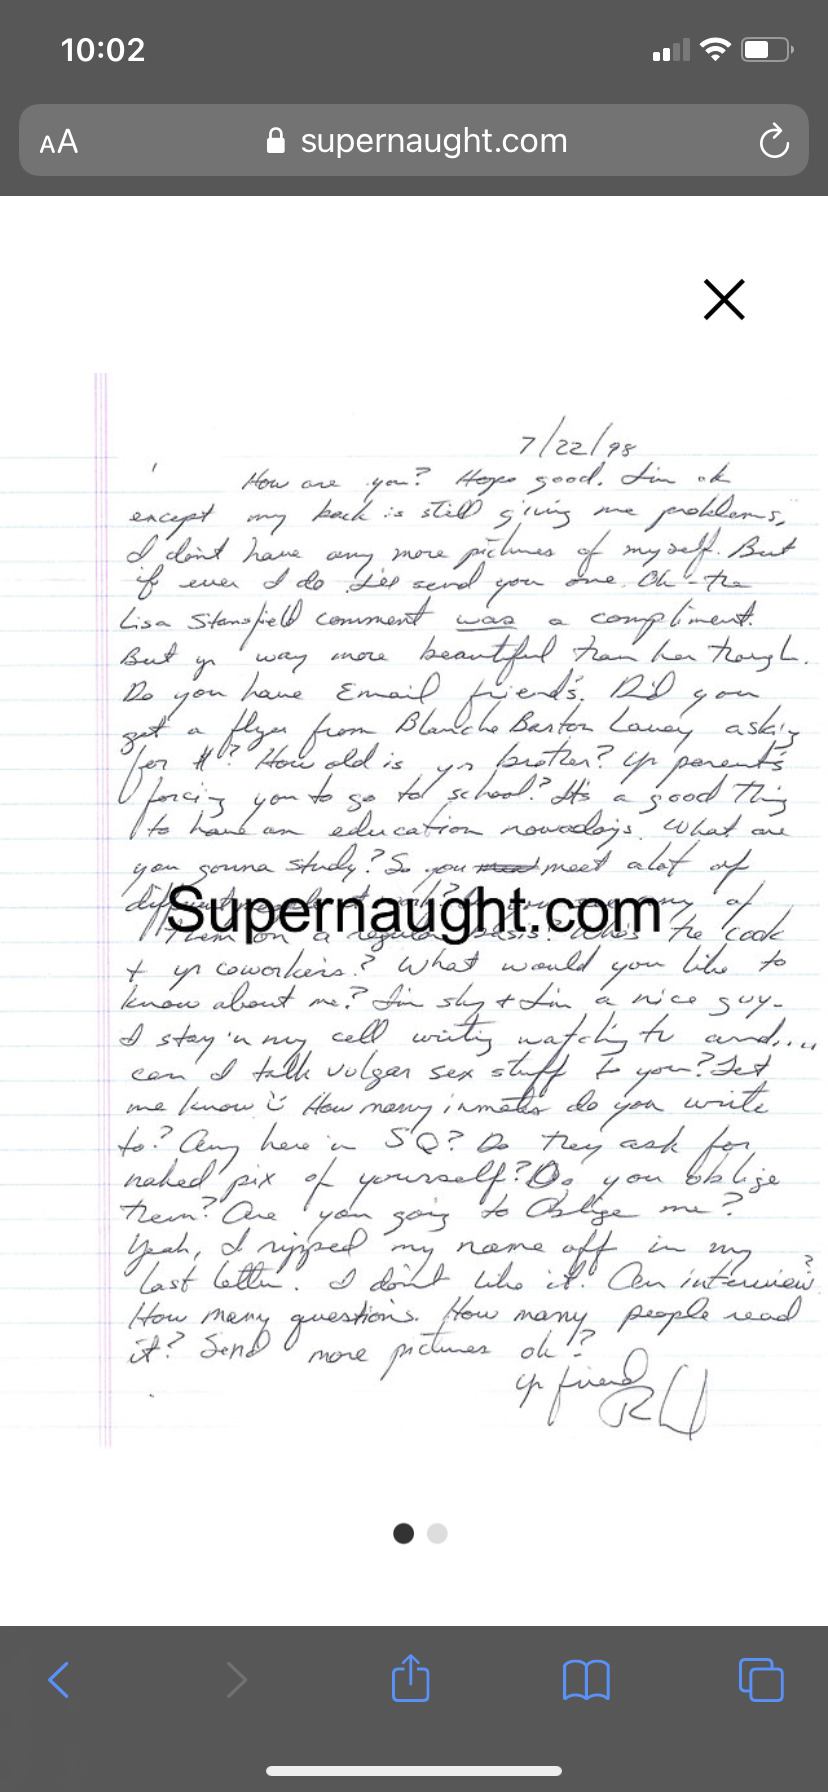 10:02
AA supernaught.com
7/22/98
How are you? Hope good. I'm ok
except my back is still giving me problems,
I don't have any more pictures of myself. But
if ever I do I'll send you one. Oh - the
Lisa Stansfield comment was a compliment.
But yr way more beautiful than her though.
Do you have Email friend's. Did you
get a flyer from Blanche Barton Lavey asking
for $? How old is yr brother? Yr parent's
forcing you to go to school? It's a good thing
to have an education nowadays. What are
you gonna study? So you meet alot of
different people at work? of
Supernaught.com
them on a regular basis? Who's the cook
+ yr coworkers? What would you like to
know about me? I'm shy + I'm a nice guy.
I stay in my cell writing watching tv and....
can I talk vulgar sex stuff to you? Let
me know How many inmates do you write
to? Any here in SQ? Do they ask for
naked pix of yourself? Do you oblige
them? Are you going to Oblige me?
Yeah, I ripped my name off in my
last letter. I don't like it. An interview?
How many questions. How many people read
it? Send more pictures ok!?
yr friend